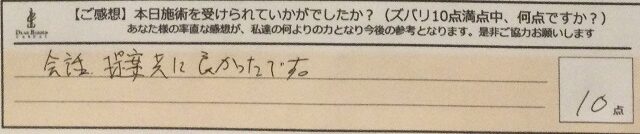 【ご感想】本日施術を受けられていかがでしたか？（ズバリ10点満点中、何点ですか？）
あなた様の率直な感想が、私達の何よりの力となり今後の参考となります。是非ご協力お願いします
会話、操業共に良かったです。
10点